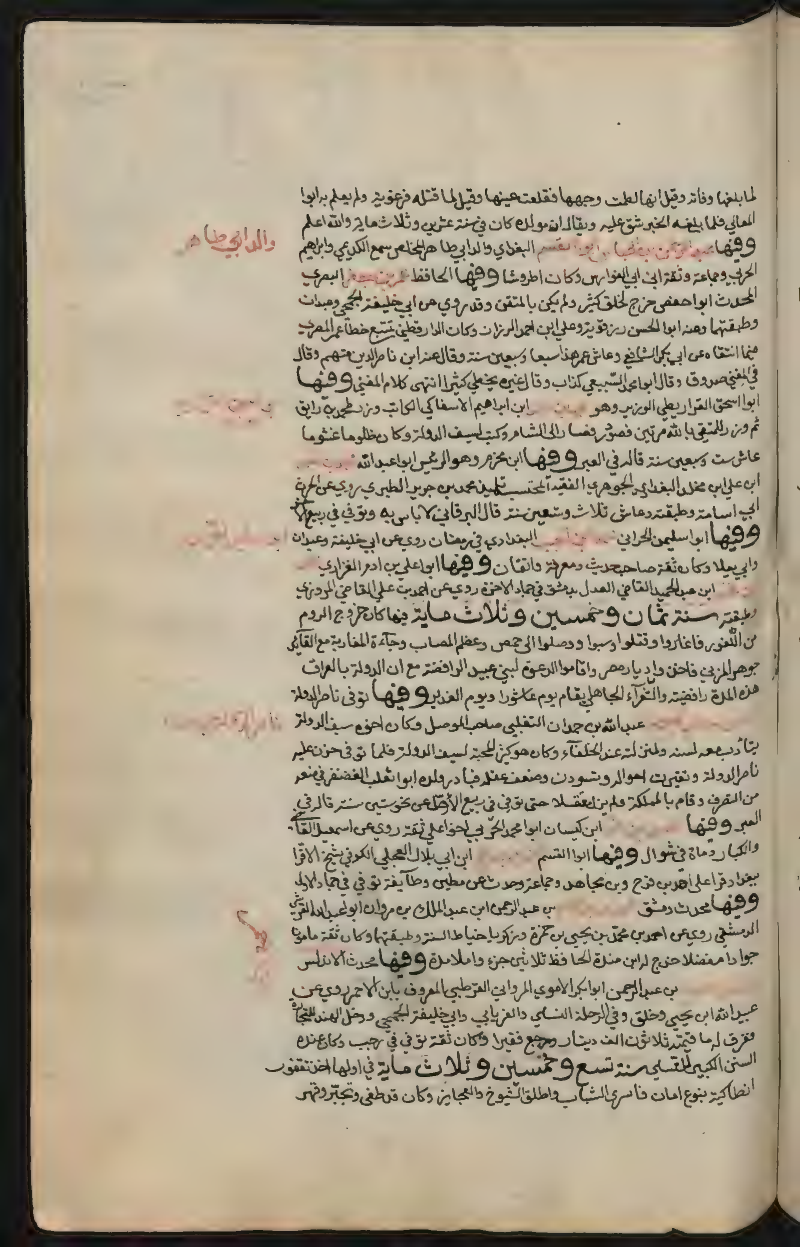 لما بلغها وفاته وقيل انها لطمت وجهها فقلعت عينها وقيل لما قتله قرغويه ولم يعلم به ابوا
المعالي فلما بلغه الخبر شق عليه ويقال ان مولده كان في سنة عشرين وثلاث ماية والله اعلم
وفيها عبد الرحمن بن العباس ابوا القسم البغدادي والد ابي طاهر المخلص سمع الكديمي وابراهيم
والد ابي طاهر
الحربي وجماعة وثقه ابن ابي الفوارس وكان اطروشا وفيها الحافظ عمر بن جعفر البصري
المحدث ابوا حفص خرج لخلق كثير ولم يكن بالمتقن وقد روي عن ابي خليفة الجمحي وعبدان
وطبقتهما وعنه ابوا الحسن رزقويه وعلي ابن احمد الرزاز وكان الدارقطني يتتبع خطا عمر البصري
فيما انتقاه عن ابي بكر الشافعي وعاش عمر هذا سبعا وسبعين سنة وقال عنه ابن ناصر الدين متهم وقال
في المغني صدوق وقال ابوا محمد السبيعي كذاب وقال غيره يخطي كثيرا انتهى كلام المغني وفيها
ابوا اسحق القراريطي الوزير وهو ابن ابراهيم الاسكافي الكاتب وزر لمحمد بن رايق
ثم وزر للمتقي بالله مرتين فصودر فصار الى الشام وكتب لسيف الدولة وكان ظلوما غشوما
عاش ست وسبعين سنة قاله في العبر وفيها ابن محرم وهو الرئيس ابوا عبد الله
ابن علي ابن مخلد البغدادي الجوهري الفقيه المحتسب تلميذ محمد بن جرير الطبري روي عن الحرث
ابن ابي اسامة وطبقته وعاش ثلاث وتسعين سنة قال البرقاني لا باس به وتوفي في ربيع الاخر
وفيها ابوا سليمن الحراني البغدادي في رمضان روي عن ابي خليفة وعبدان
وابي يعلا وكان ثقة صاحب حديث ومعرفة واتقان وفيها ابوا علي بن ادم الفزاري
ابن عبد الحميد القاضي العدل بدمشق في جماد الاخرة روي عن احمد بن علي القاضي المروزي
وطبقته سنة ثمان وخمسين وثلاث ماية فيها كان خروج الروم
من الثغور فاغاروا وقتلوا وسبوا ووصلوا الى حمص وعظم المصاب وجاءة المغاربة مع القايد
جوهر المزي فاخذوا ديار مصر واقاموا الدعوة لبني عبيد الرافضة مع ان الدولة بالعراق
هذه المدة رافضية والشعراء الجاهلي يقام يوم عاشورا ويوم الغدير وفيها توفي ناصر الدولة
عبد الله بن حمدان التغلبي صاحب الموصل وكان اخوه سيف الدولة
ناصر الدولة
يتادب معه لسنه ولمنزلته عند الخلفاء وكان هو كثير المحبة لسيف الدولة فلما توفي حزن عليه
ناصر الدولة وتغيرت احواله وتسودن وضعف عقله فبادر ولده ابوا تغلب الغضنفر فمنعه
من التصرف وقام بالمملكة ولم يزل معتقلا حتى توفي في ربيع الاول عن نحو ستين سنة قاله في
العبر وفيها ابن كيسان ابوا محمد الحربي اخوا علي ثقة روي عن اسمعيل القاضي
والكبار وماة في شوال وفيها ابوا القسم ابن ابي بلال العجلي الكوفي شيخ الاقرا
ببغداد قرا على احمد بن فرح وبن مجاهد وجماعة وحدث عن مطين وطايفة توفي في جماد الاول
وفيها محدث دمشق بن عبد الرحمن ابن عبد الملك بن مروان ابوا عبد الله القرشي
الدمشقي روي عن احمد بن محمد بن يحيى بن حمزة وزكريا خياط السنة وطبقتهما وكان ثقة مامونا
جوادا مفضلا خرج له ابن مندة الحافظ ثلاثين جزء واملا مدة وفيها محدث الاندلس
بن عبد الرحمن ابوا بكر الاموي المرواني القرطبي المعروف بابن الاحمر روي عن
عبيد الله ابن يحيى وخلق وفي الرحلة النسائي والفريابي وابي خليفة الجمحي ودخل الهند للتجارة
فغرق له ما قيمته ثلاثون الف دينار ورجع فقيرا وكان ثقة توفي في رجب وكان عنده
السنن الكبير للنسائي سنة تسع وخمسين وثلاث ماية في اولها اخذ نقفور
انطاكية بنوع امان فاسر الشباب واطلق الشيوخ والعجايز وكان قد طغى وتجبر وقهر